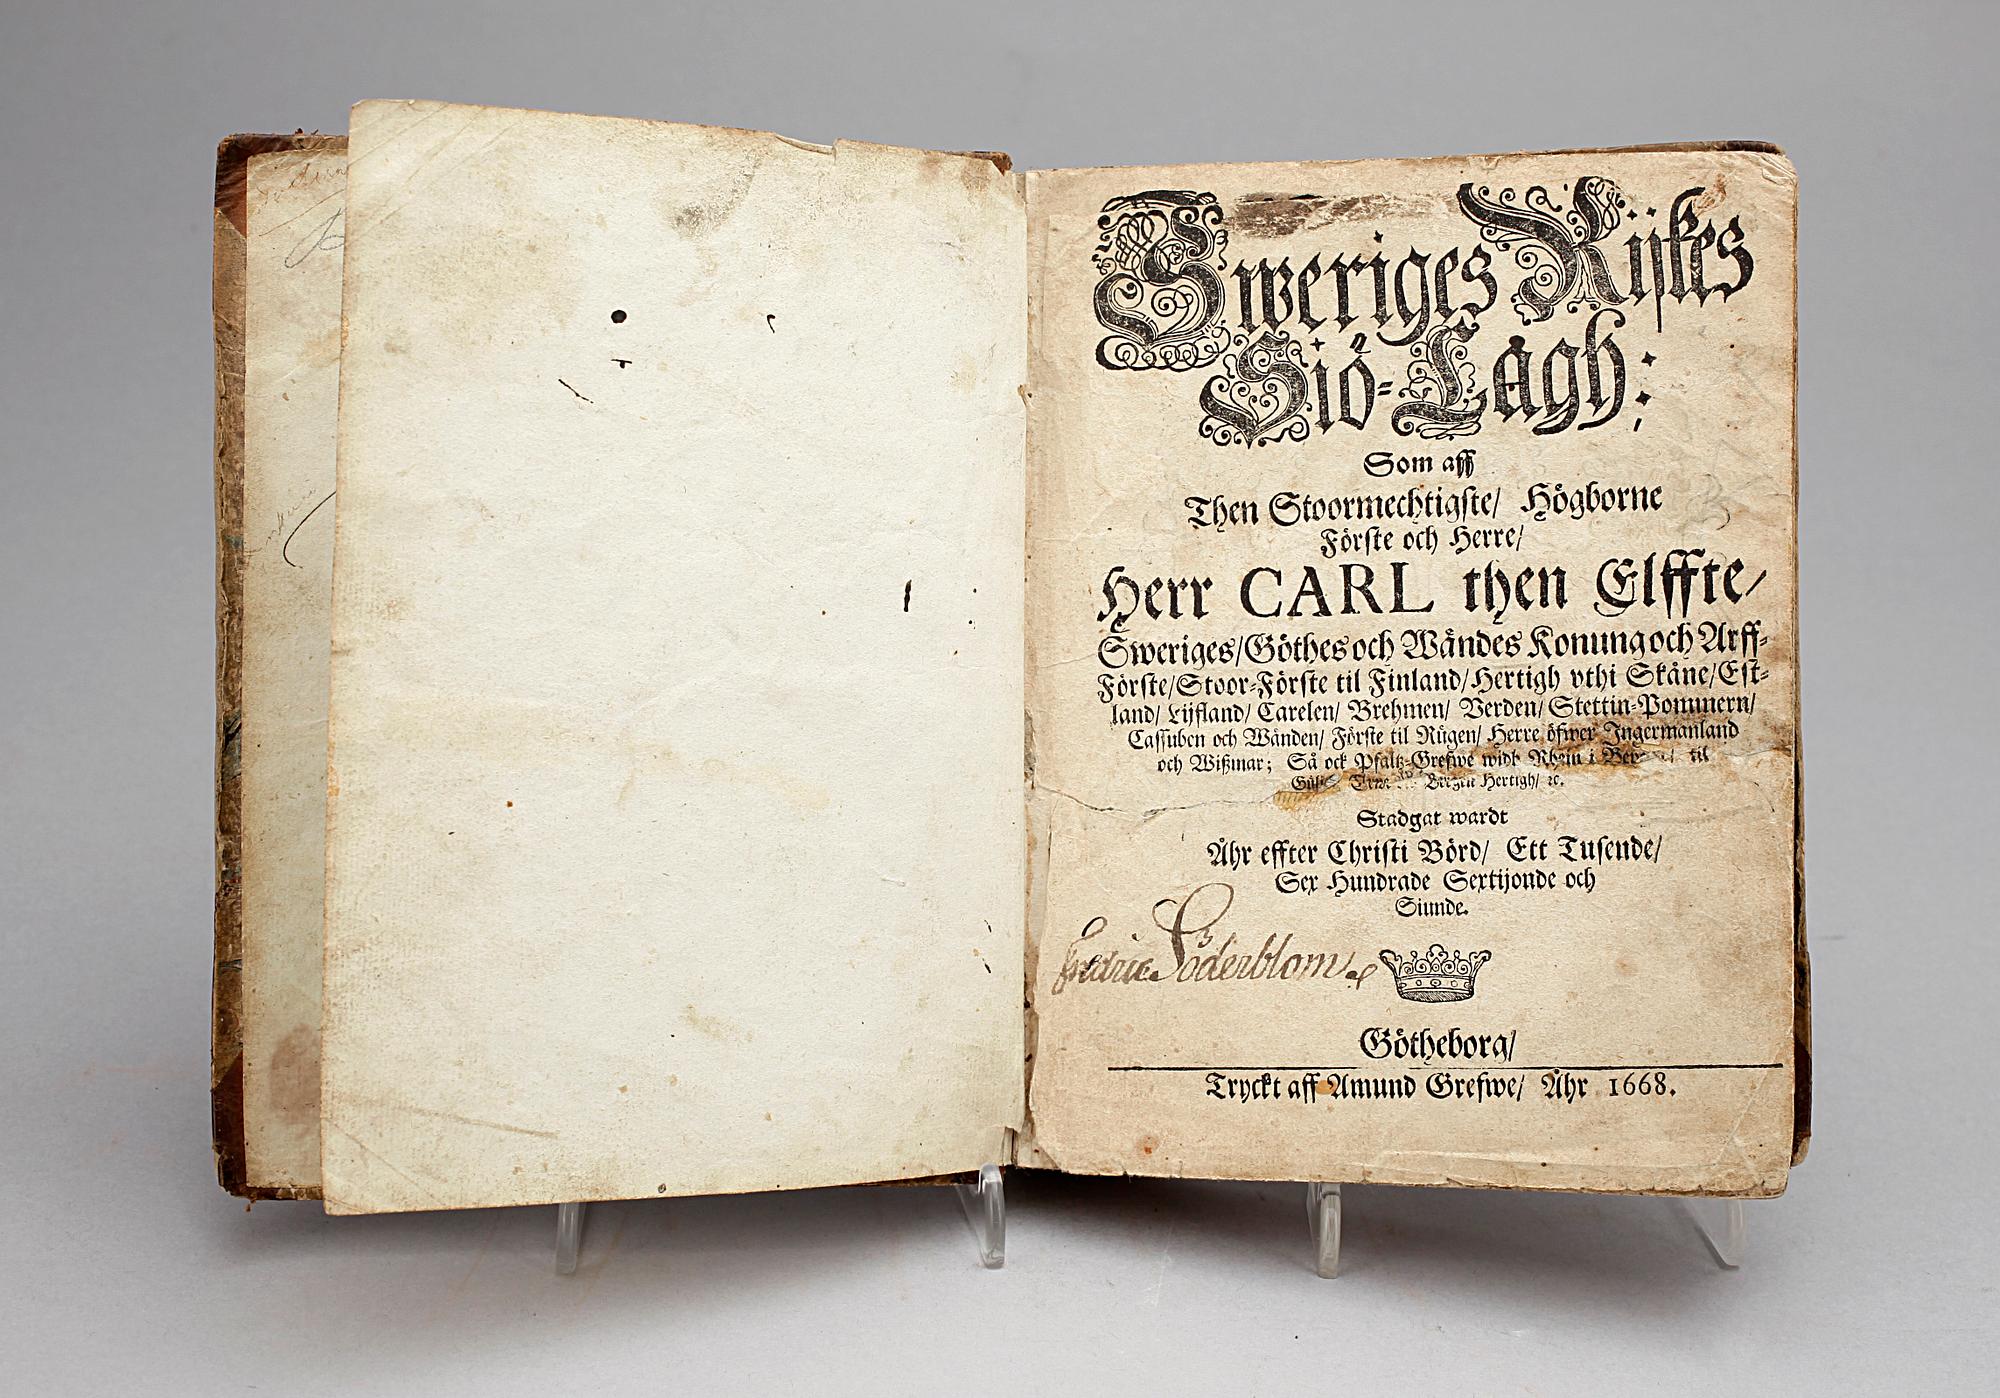 Sweriges Rijkes
Siö-Lagh;
Som aff
Then Stoormechtigste/ Högborne
Förste och Herre/
Herr CARL then Elffte/
Sweriges/Göthes och Wändes Konung och Arff-
Förste/Stoor-Förste til Finland/Hertigh vthi Skåne/Est-
land/ Lijfland/ Carelen/ Brehmen/ Verden/ Stettin-Pommern/
Cassuben och Wänden/ Förste til Rügen/ Herre öfwer Ingermanland
och Wißmar; Så ock Pfaltz-Grefwe widh Rhein i til
Bergen Hertigh/ ⁊c.
Stadgat wardt
Åhr effter Christi Börd/ Ett Tusende/
Sex Hundrade Sextijonde och
Siunde.
Fredric Söderblom
Götheborg/
Tryckt aff Amund Grefwe/ Åhr 1668.